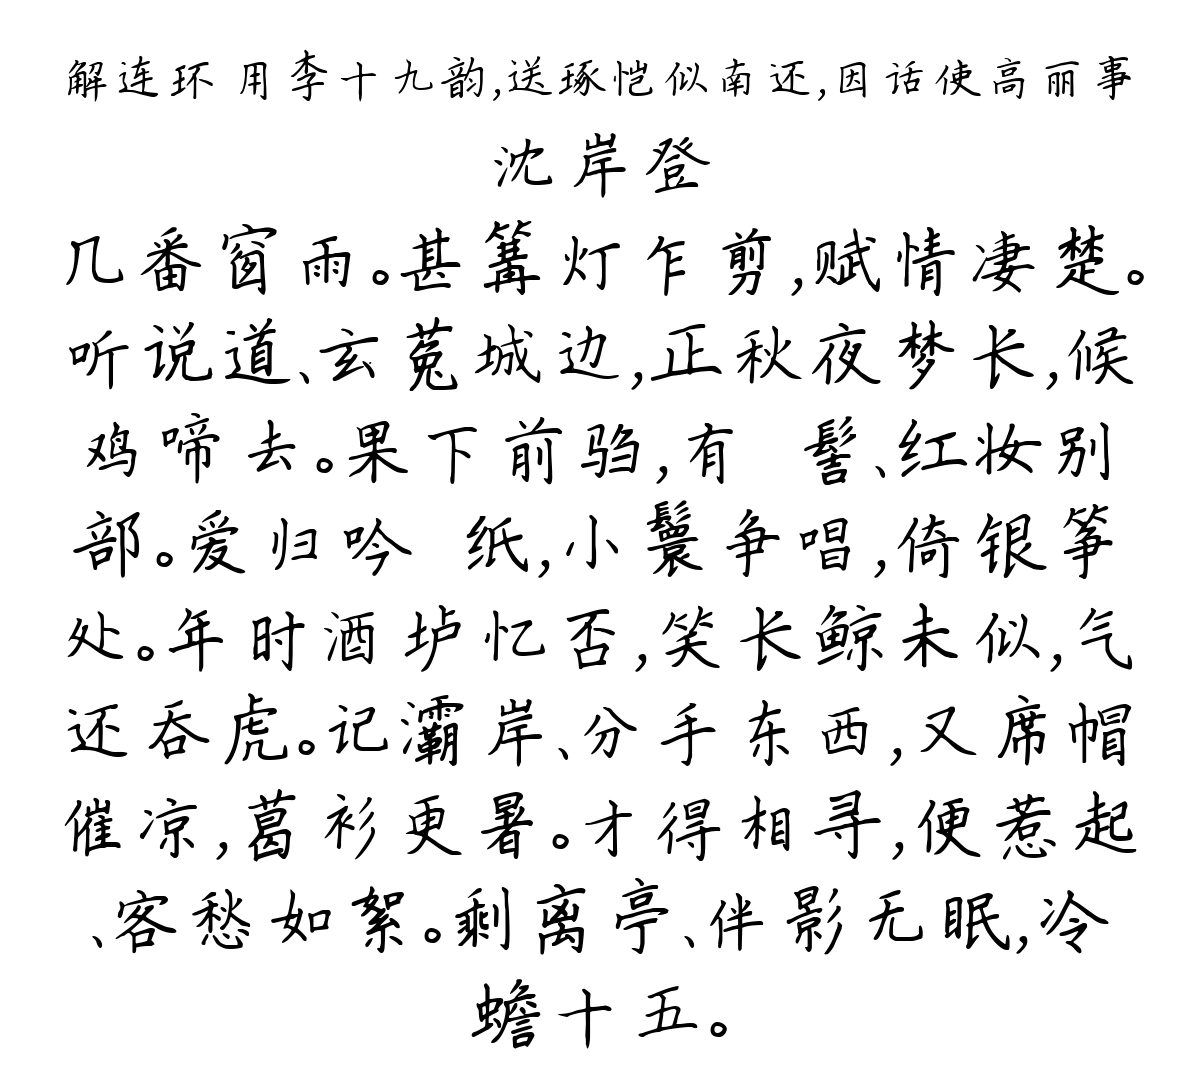 解连环 用李十九韵,送琢恺似南还,因话使高丽事
沈岸登
几番窗雨。甚篝灯乍剪,赋情凄楚。
听说道、玄菟城边,正秋夜梦长,候
鸡啼去。果下前驺,有 髻、红妆别
部。爱归吟 纸,小鬟争唱,倚银筝
处。年时酒垆忆否,笑长鲸未似,气
还吞虎。记灞岸、分手东西,又席帽
催凉,葛衫更暑。才得相寻,便惹起
、客愁如絮。剩离亭、伴影无眠,冷
蟾十五。